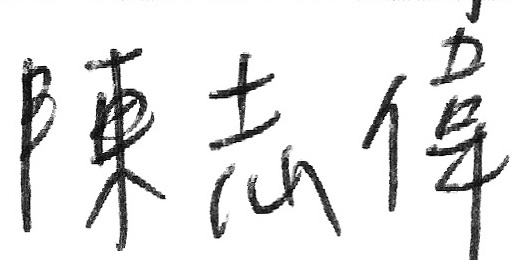 陳志偉